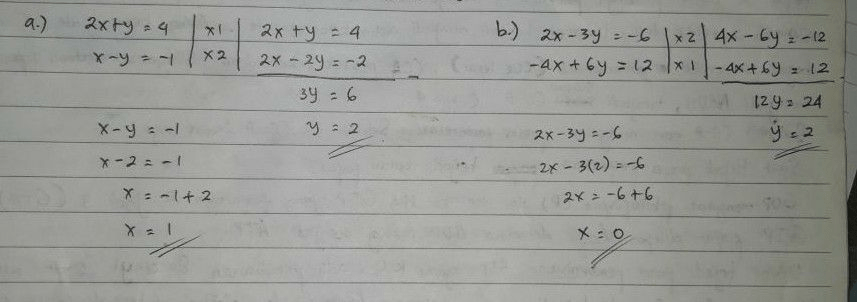 a.) 2x+y = 4 | x1 | 2x+y = 4
x-y = -1 | x2 | 2x-2y = -2 -
3y = 6
x-y = -1
y = 2
x-2 = -1
x = -1+2
x = 1
b.) 2x-3y = -6 | x2 | 4x-6y = -12
-4x+6y = 12 | x1 | -4x+6y = 12 -
12y = 24
2x-3y = -6
y = 2
2x-3(2) = -6
2x = -6+6
x = 0